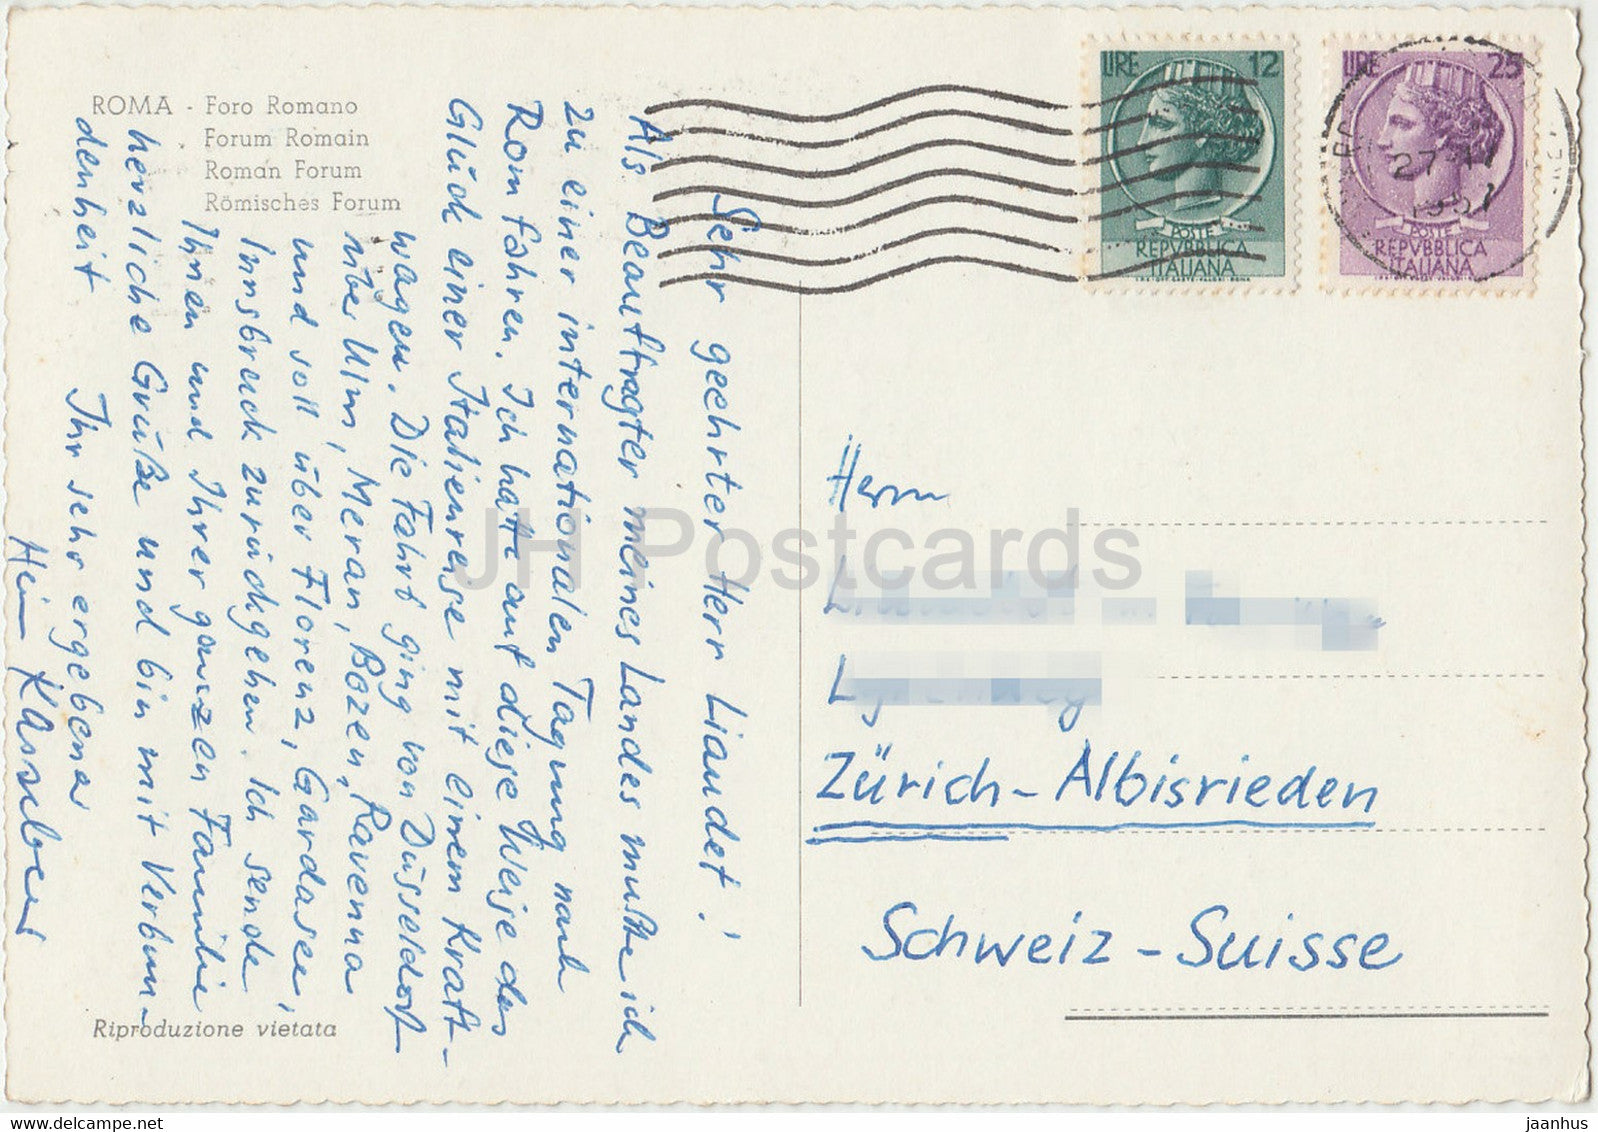 ROMA - Foro Romano
Forum Romain
Roman Forum
Römisches Forum
Sehr geehrter Herr Liaudet!
Als Beauftragter meines Landes mußte ich
zu einer internationalen Tagung nach
Rom fahren. Ich hatte auf diese Weise das
Glück einer Italienreise mit einem Kraft-
wagen. Die Fahrt ging von Düsseldorf
über Ulm, Meran, Bozen, Ravenna
und soll über Florenz, Gardasee,
Innsbruck zurückgehen. Ich sende
Ihnen und Ihrer ganzen Familie
herzliche Grüße und bin mit Verbun-
denheit Ihr sehr ergebener
Riproduzione vietata
LIRE 12
POSTE
REPVBBLICA
ITALIANA
LIRE 25
POSTE
REPVBBLICA
ITALIANA
27
Herrn
Zürich-Albisrieden
Schweiz-Suisse
JH Postcards
www.delcampe.net
jaanhus